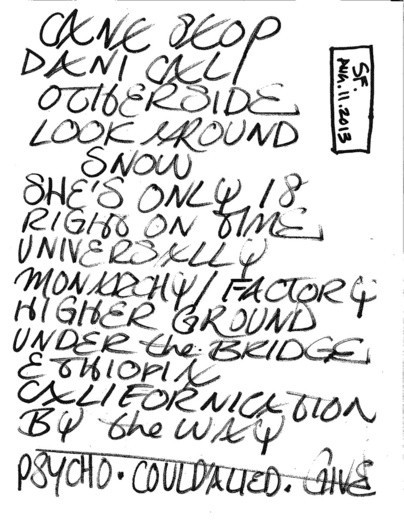 CAN'T STOP
DANI CALI
OTHERSIDE
LOOK AROUND
SNOW
SHE'S ONLY 18
RIGHT ON TIME
UNIVERSALLY
MONARCHY/FACTORY
HIGHER GROUND
UNDER the BRIDGE
ETHIOPIA
CALIFORNICATION
BY the WAY
PSYCHO. COULDALIED. GIVE
SF.
AUG. 11. 2013